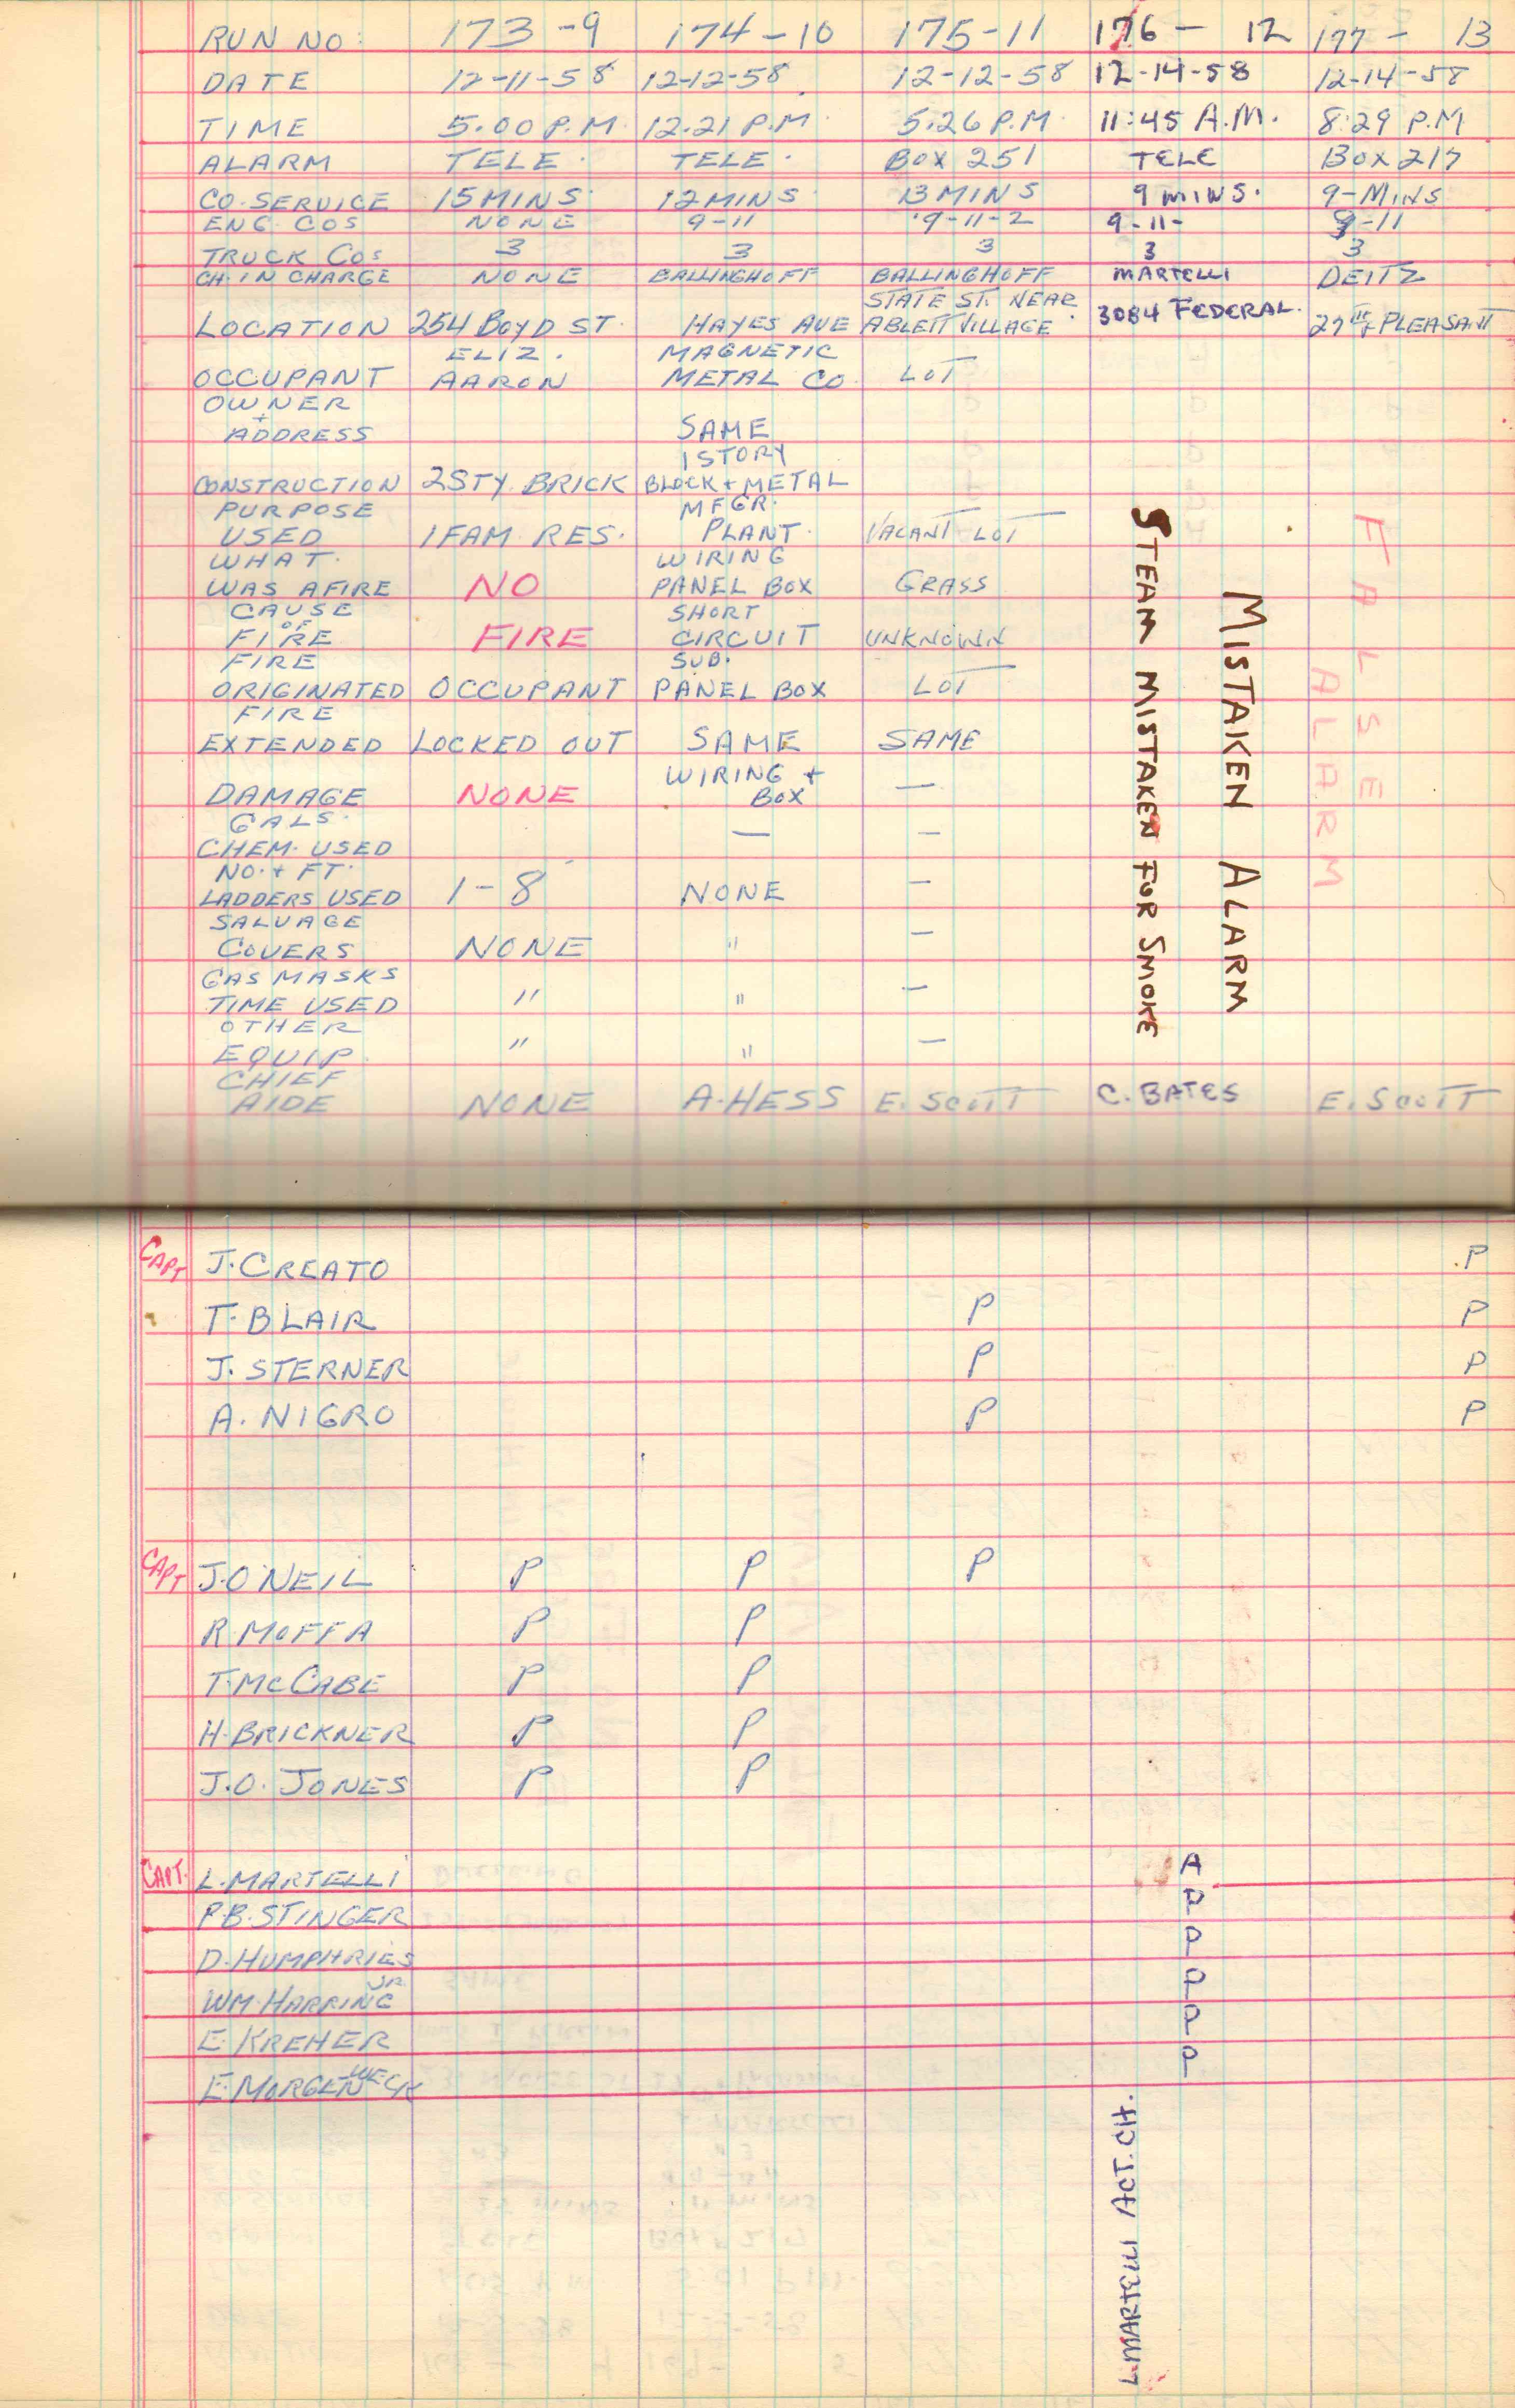 RUN NO: 173-9 174-10 175-11 176- 12 177- 13
DATE 12-11-58 12-12-58 12-12-58 12-14-58 12-14-58
TIME 5:00 P.M. 12:21 P.M. 5:26 P.M. 11:45 A.M. 8:29 P.M
ALARM TELE. TELE. BOX 251 TELE BOX 217
CO. SERVICE 15 MINS. 12 MINS. 13 MINS 9 MINS. 9-MINS
ENG COS NONE 9-11 9-11-2 9-11- 9-11
TRUCK COS 3 3 3 3 3
CH. IN CHARGE NONE BALLINGHOFF BALLINGHOFF MARTELLI DEITZ
LOCATION 254 BOYD ST. HAYES AVE STATE ST. NEAR ABLETT VILLAGE 3084 FEDERAL. 27TH + PLEASANT
OCCUPANT ELIZ. AARON MAGNETIC METAL CO. LOT
OWNER + ADDRESS SAME
CONSTRUCTION 2 STY. BRICK 1 STORY BLOCK + METAL
PURPOSE USED 1 FAM. RES. MFGR. PLANT. VACANT LOT
WHAT WAS AFIRE NO WIRING PANEL BOX GRASS
CAUSE OF FIRE FIRE SHORT CIRCUIT UNKNOWN
FIRE ORIGINATED OCCUPANT SUB. PANEL BOX LOT
FIRE EXTENDED LOCKED OUT SAME SAME
DAMAGE NONE WIRING + BOX —
GALS. CHEM. USED — —
NO. + FT. LADDERS USED 1-8' NONE —
SALVAGE COVERS NONE " —
GAS MASKS TIME USED " " —
OTHER EQUIP. " " —
STEAM MISTAKEN FOR SMOKE
MISTAKEN ALARM
FALSE ALARM
CHIEF AIDE NONE A. HESS E. SCOTT C. BATES E. SCOTT
CAPT J. CREATO P
T. BLAIR P P
J. STERNER P P
A. NIGRO P P
CAPT J. O'NEIL P P P
R MOFFA P P
T. MCCABE P P
H. BRICKNER P P
J.O. JONES P P
CAPT. L. MARTELLI A
P.B. STINGER P
D. HUMPHRIES P
WM. HARRING JR P
E. KREHER P
E. MORGENWECK P
L. MARTELLI ACT. CH.